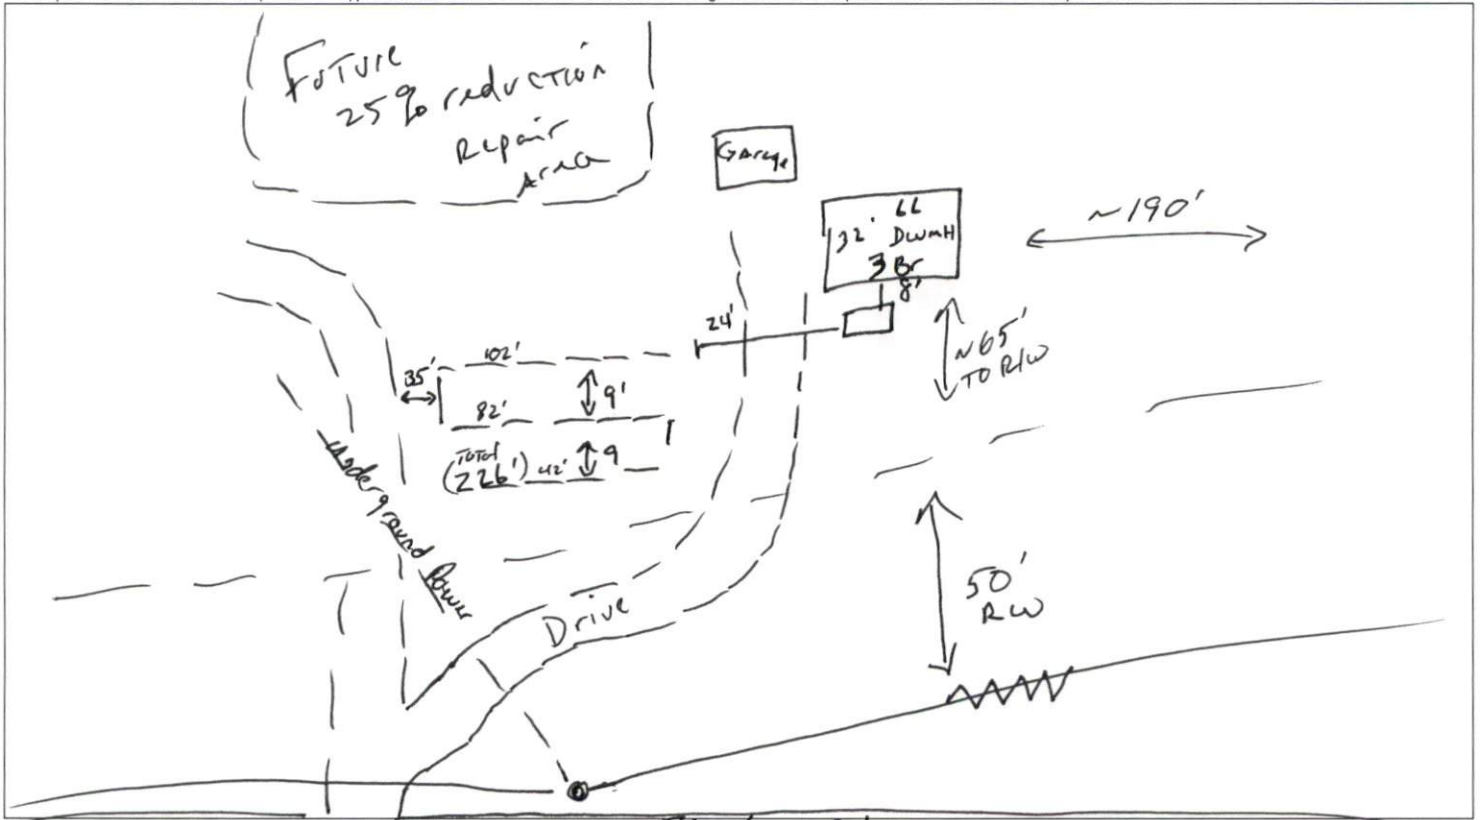 Future
25% reduction
Repair
Area
Garage
66
32' DWMH
3 Br
8'
~190'
24'
~65'
TO R/W
35'
102'
9'
82'
Total
(226') 42' 9
Underground Power
Drive
50'
RW